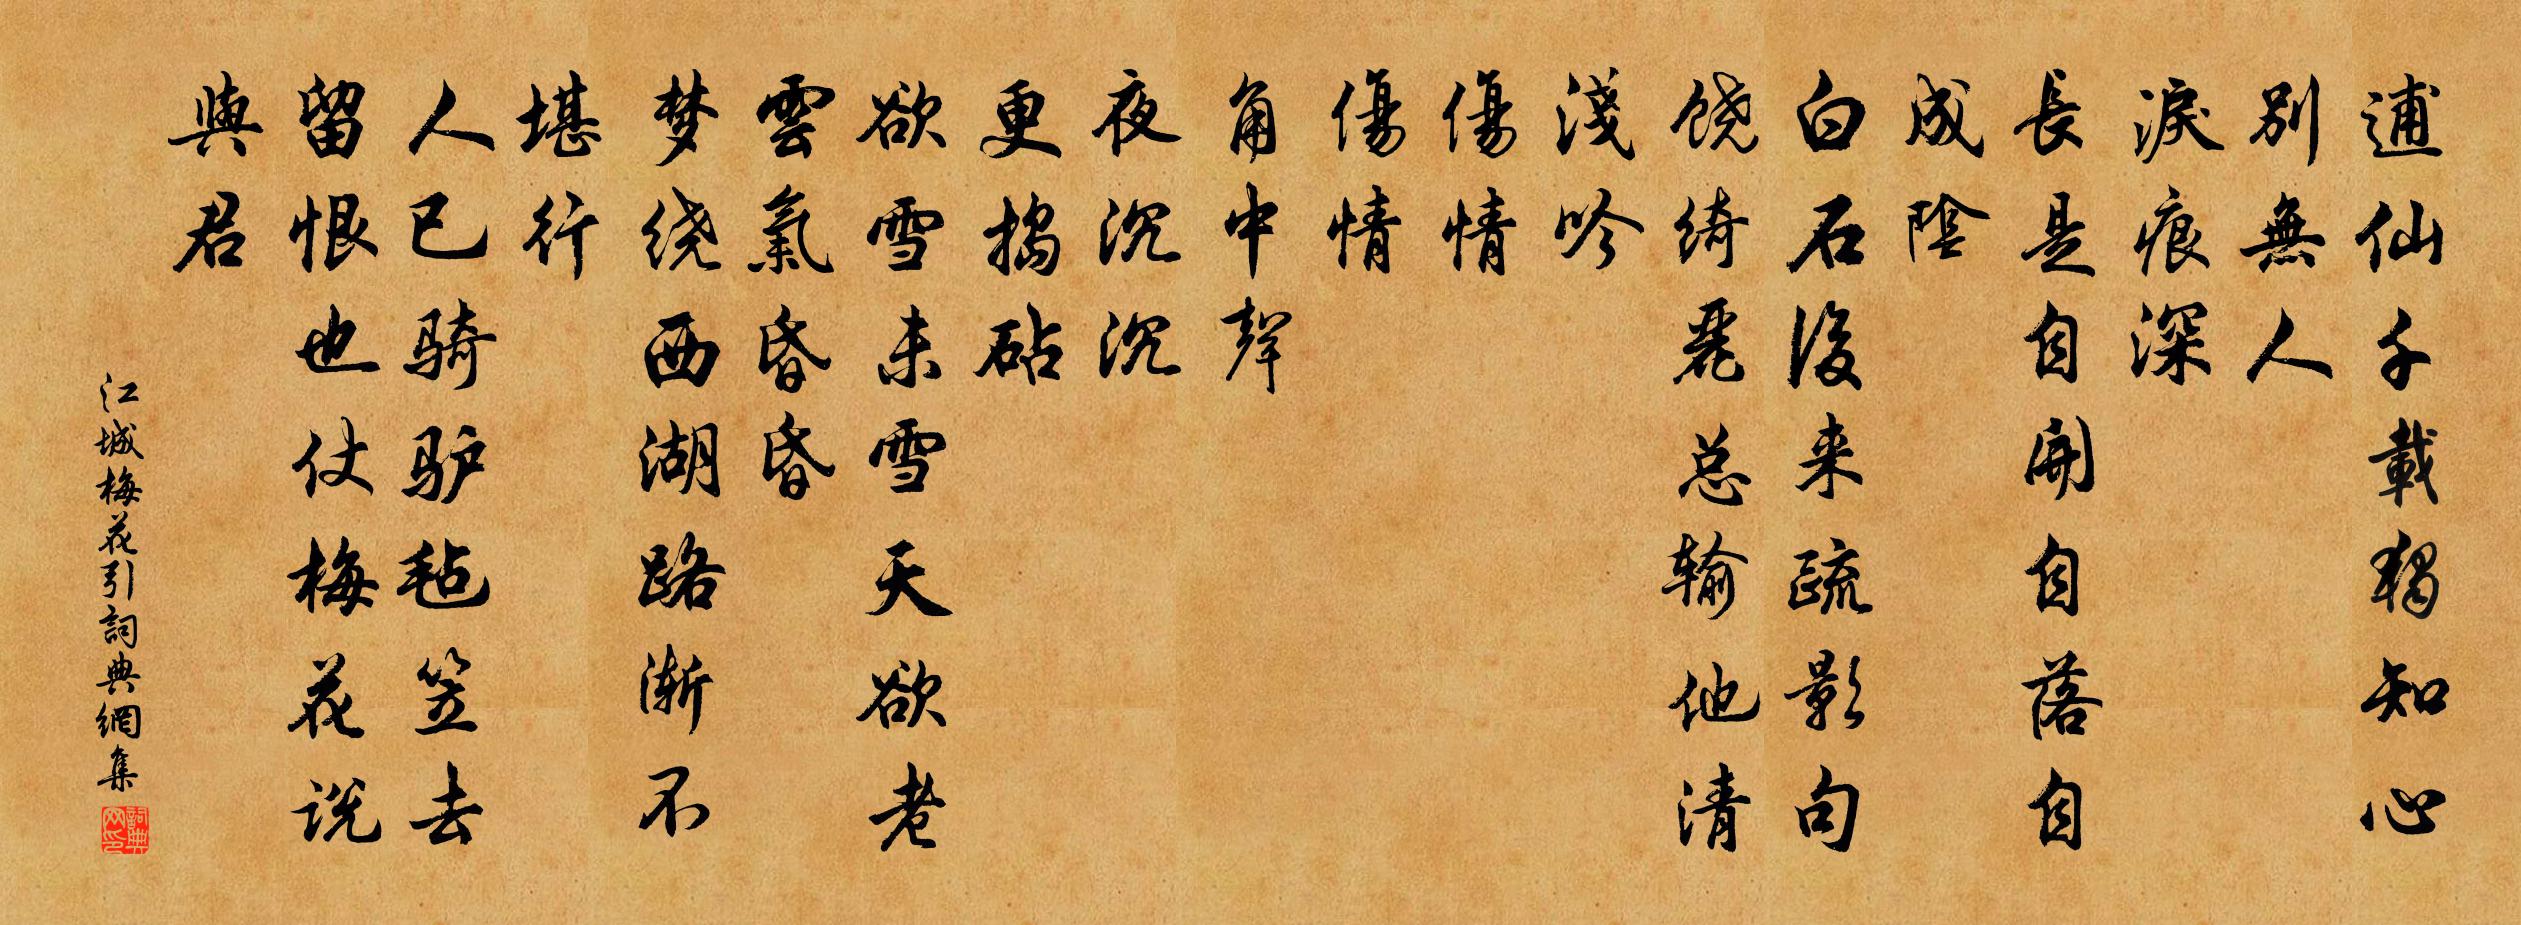 逋仙千載獨知心
別無人
淚痕深
長是自開自落自
成陰
白石後来疏影句
饶綺麗总输他清
淺吟
傷情
傷情
角中聲
夜沉沉
更搗砧
欲雪未雪天欲老
雲氣昏昏
梦绕西湖路渐不
堪行
人已骑驴毡笠去
留恨也仗梅花说
與君
江城梅花引詞典網集
詞典网印